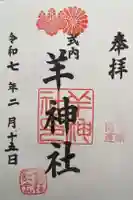 奉拝
式内
羊神社
令和七年二月十五日